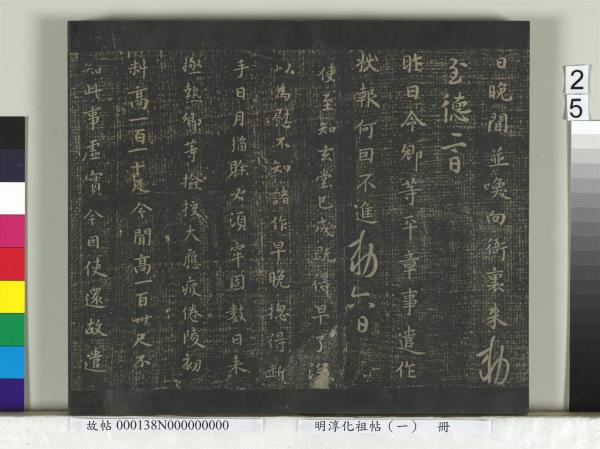 日晚間並喚向衙裏来勅
至德二日
昨日令卿等平章事遣作
狀報何回不進勅六日
使至知玄堂已成既得早了深
以為慰不知諸作早晚揔得断
手日月猶賒必須牢固數日来
極熱卿等檢挍大應疲倦陵初
料高一百一十尺今聞高一百卅尺不
知此事虛實今因使還故遣
故帖 000138N000000000
明淳化祖帖（一） 冊
2
5